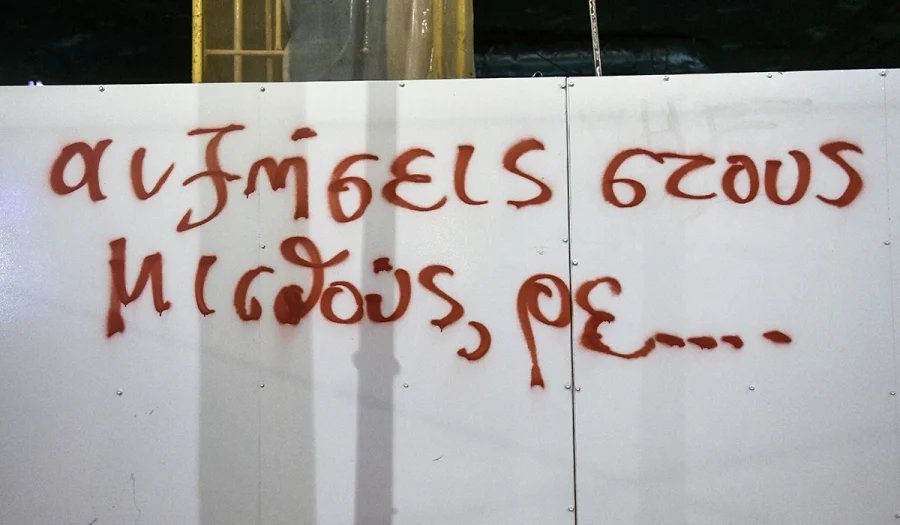 αυξήσεις στους
μισθούς, ρε.....